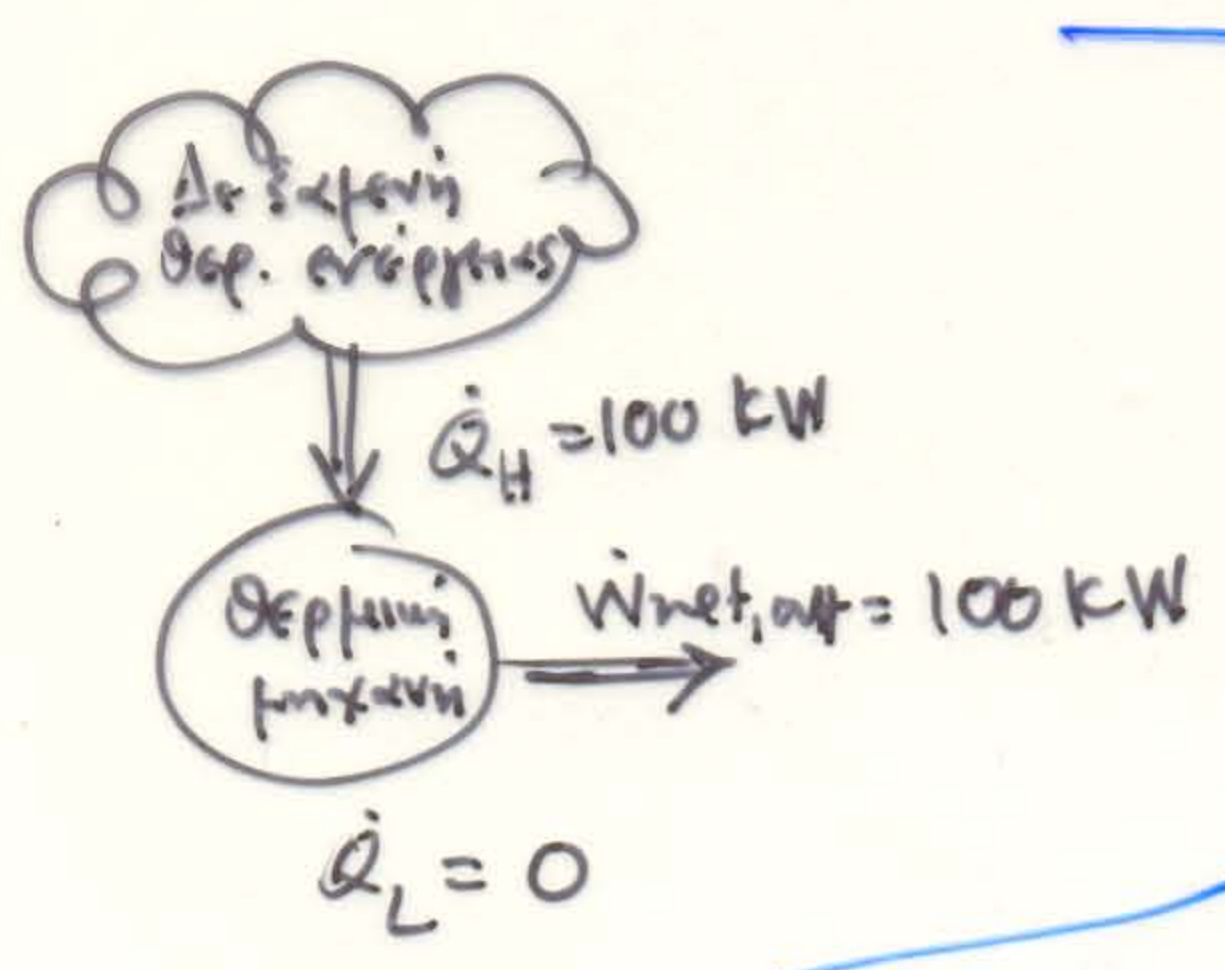 Δεξαμενή
θερ. ενέργειας
Q̇_H = 100 kW
θερμική
μηχανή
Ẇnet,out = 100 kW
Q̇_L = 0